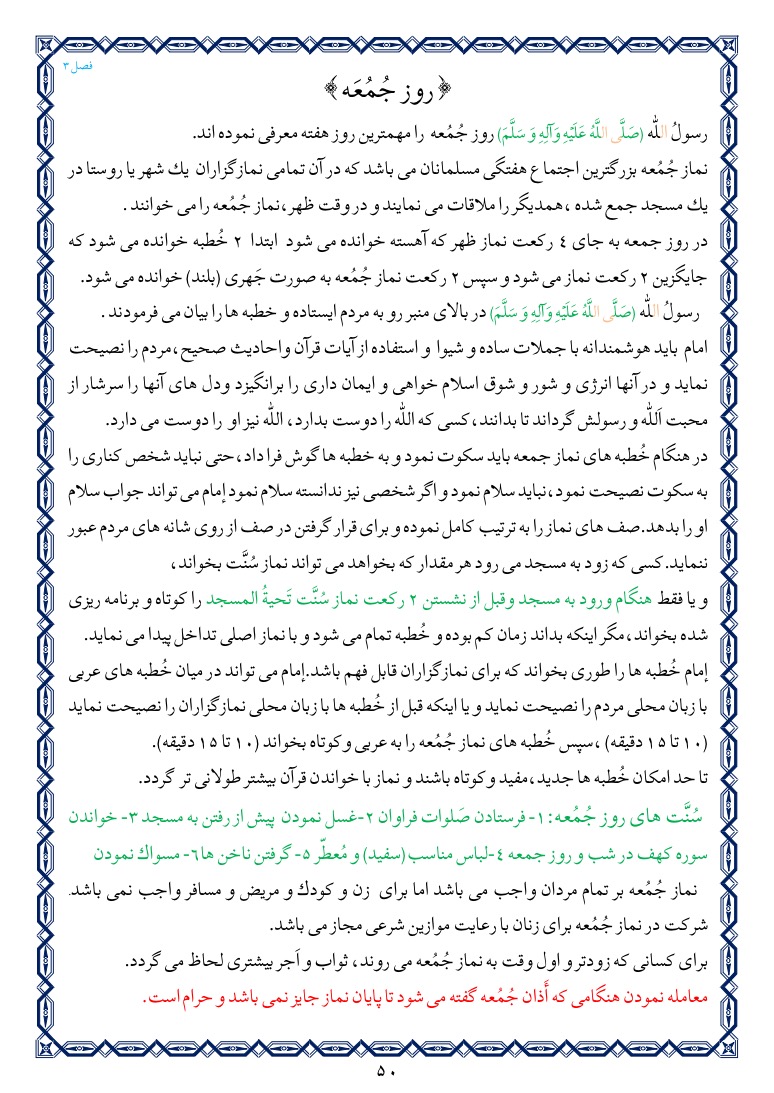 فصل ۳
﴿روز جُمُعَه﴾
رسولُ الله (صَلَّی اللَّهُ عَلَيْهِ وَآلِهِ وَ سَلَّمَ) روز جُمُعه را مهمترین روز هفته معرفی نموده اند.
نماز جُمُعه بزرگترین اجتماع هفتگی مسلمانان می باشد که در آن تمامی نمازگزاران یك شهر یا روستا در
یك مسجد جمع شده ،همدیگر را ملاقات می نمایند و در وقت ظهر،نماز جُمُعه را می خوانند .
در روز جمعه به جای ٤ رکعت نماز ظهر که آهسته خوانده می شود ابتدا ۲ خُطبه خوانده می شود که
جایگزین ۲ رکعت نماز می شود و سپس ۲ رکعت نماز جُمُعه به صورت جَهری (بلند) خوانده می شود.
رسولُ الله (صَلَّی اللَّهُ عَلَيْهِ وَآلِهِ وَ سَلَّمَ) در بالای منبر رو به مردم ایستاده و خطبه ها را بیان می فرمودند .
امام باید هوشمندانه با جملات ساده و شیوا و استفاده از آیات قرآن واحادیث صحیح،مردم را نصیحت
نماید و در آنها انرژی و شور و شوق اسلام خواهی و ایمان داری را برانگیزد ودل های آنها را سرشار از
محبت اَلله و رسولش گرداند تا بدانند،کسی که الله را دوست بدارد، الله نیز او را دوست می دارد.
در هنگام خُطبه های نماز جمعه باید سکوت نمود و به خطبه ها گوش فرا داد،حتی نباید شخص کناری را
به سکوت نصیحت نمود،نباید سلام نمود و اگر شخصی نیز ندانسته سلام نمود إمام می تواند جواب سلام
او را بدهد.صف های نماز را به ترتیب کامل نموده و برای قرار گرفتن در صف از روی شانه های مردم عبور
ننماید.کسی که زود به مسجد می رود هر مقدار که بخواهد می تواند نماز سُنَّت بخواند،
و یا فقط هنگام ورود به مسجد وقبل از نشستن ۲ رکعت نماز سُنَّت تَحیةُ المسجد را کوتاه و برنامه ریزی
شده بخواند،مگر اینکه بداند زمان کم بوده و خُطبه تمام می شود و با نماز اصلی تداخل پیدا می نماید.
إمام خُطبه ها را طوری بخواند که برای نمازگزاران قابل فهم باشد.إمام می تواند در میان خُطبه های عربی
با زبان محلی مردم را نصیحت نماید و یا اینکه قبل از خُطبه ها با زبان محلی نمازگزاران را نصیحت نماید
(۱۰ تا ۱۵ دقیقه) ،سپس خُطبه های نماز جُمُعه را به عربی وکوتاه بخواند (۱۰ تا ۱۵ دقیقه).
تا حد امکان خُطبه ها جدید،مفید وکوتاه باشند و نماز با خواندن قرآن بیشتر طولانی تر گردد.
سُنَّت های روز جُمُعه:۱- فرستادن صَلوات فراوان ۲-غسل نمودن پیش از رفتن به مسجد ۳- خواندن
سوره کهف در شب و روز جمعه ٤-لباس مناسب(سفید) و مُعطّر ۵- گرفتن ناخن ها ٦- مسواك نمودن
نماز جُمُعه بر تمام مردان واجب می باشد اما برای زن و کودك و مریض و مسافر واجب نمی باشد.
شرکت در نماز جُمُعه برای زنان با رعایت موازین شرعی مجاز می باشد.
برای کسانی که زودتر و اول وقت به نماز جُمُعه می روند، ثواب و اَجر بیشتری لحاظ می گردد.
معامله نمودن هنگامی که أَذان جُمُعه گفته می شود تا پایان نماز جایز نمی باشد و حرام است.
۵۰